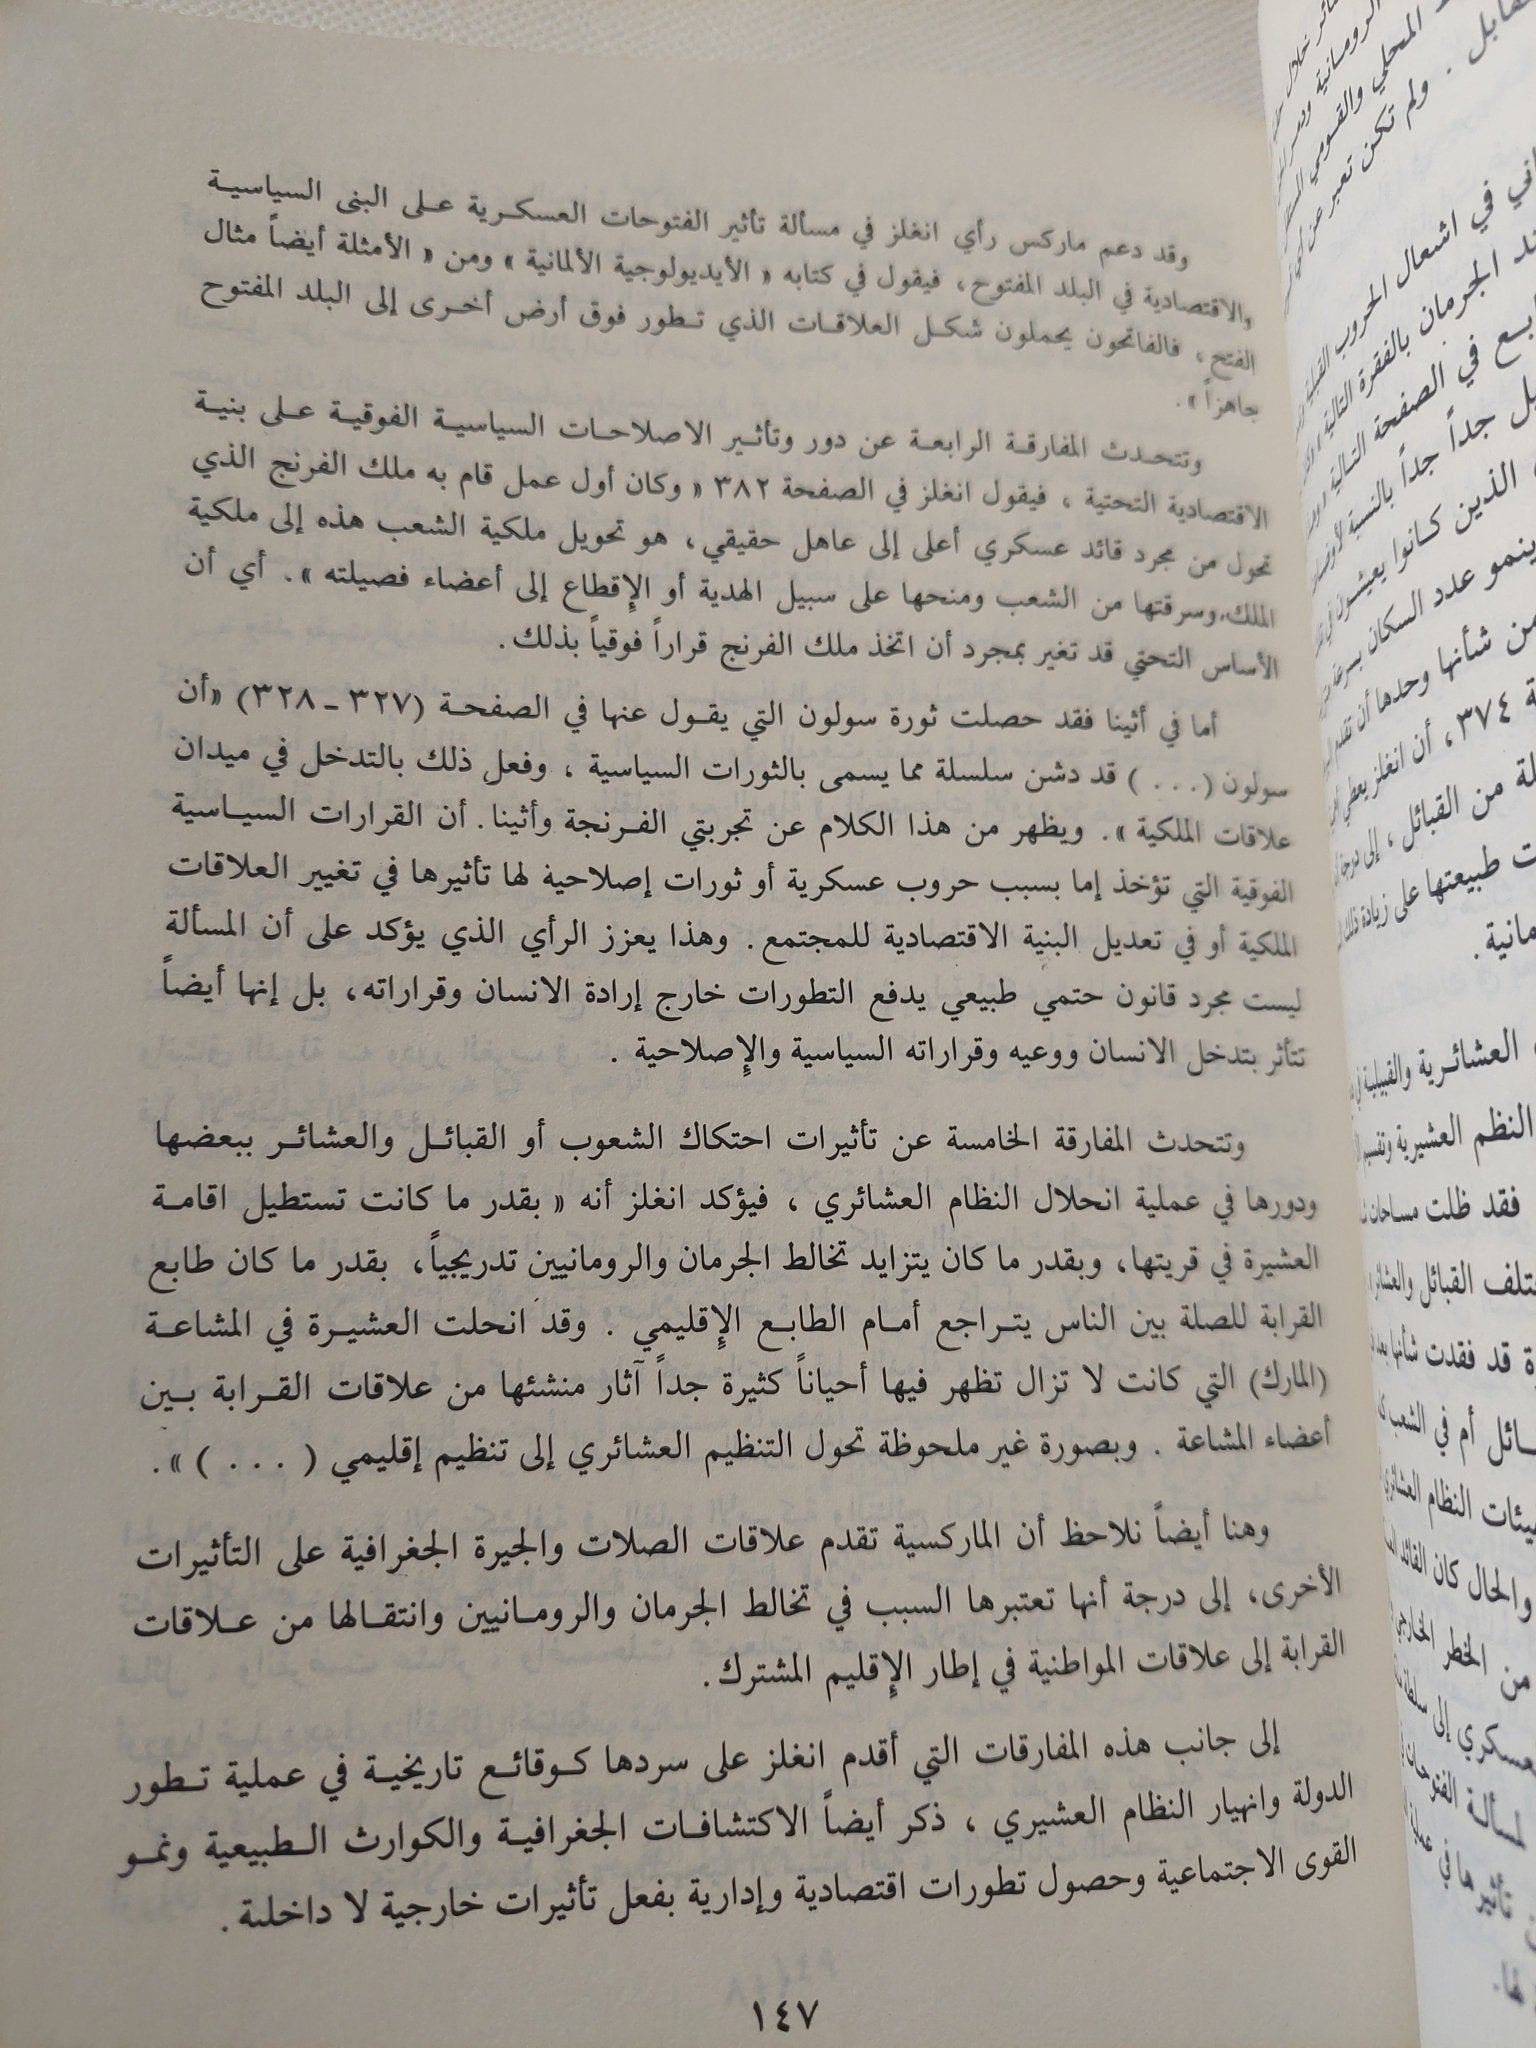 وقد دعم ماركس رأي انغلز في مسألة تأثير الفتوحات العسكرية على البنى السياسية
والاقتصادية في البلد المفتوح، فيقول في كتابه « الأيديولوجية الألمانية » ومن « الأمثلة أيضاً مثال
الفتح، فالفاتحون يحملون شكل العلاقات الذي تطور فوق أرض أخرى إلى البلد المفتوح
جاهزاً ».
وتتحدث المفارقة الرابعة عن دور وتأثير الاصلاحات السياسية الفوقية على بنية
الاقتصادية التحتية ، فيقول انغلز في الصفحة ٣٨٢ « وكان أول عمل قام به ملك الفرنج الذي
تحول من مجرد قائد عسكري أعلى إلى عاهل حقيقي، هو تحويل ملكية الشعب هذه إلى ملكية
الملك، وسرقتها من الشعب ومنحها على سبيل الهدية أو الإقطاع إلى أعضاء فصيلته ». أي أن
الأساس التحتي قد تغير بمجرد أن اتخذ ملك الفرنج قراراً فوقياً بذلك.
أما في أثينا فقد حصلت ثورة سولون التي يقول عنها في الصفحة (٣٢٧ - ٣٢٨) «أن
سولون (...) قد دشن سلسلة مما يسمى بالثورات السياسية ، وفعل ذلك بالتدخل في ميدان
علاقات الملكية ». ويظهر من هذا الكلام عن تجربتي الفرنجة وأثينا. أن القرارات السياسية
الفوقية التي تؤخذ إما بسبب حروب عسكرية أو ثورات إصلاحية لها تأثيرها في تغيير العلاقات
الملكية أو في تعديل البنية الاقتصادية للمجتمع. وهذا يعزز الرأي الذي يؤكد على أن المسألة
ليست مجرد قانون حتمي طبيعي يدفع التطورات خارج إرادة الانسان وقراراته، بل إنها أيضاً
تتأثر بتدخل الانسان ووعيه وقراراته السياسية والإصلاحية .
وتتحدث المفارقة الخامسة عن تأثيرات احتكاك الشعوب أو القبائل والعشائر ببعضها
ودورها في عملية انحلال النظام العشائري ، فيؤكد انغلز أنه « بقدر ما كانت تستطيل اقامة
العشيرة في قريتها، وبقدر ما كان يتزايد تخالط الجرمان والرومانيين تدريجياً، بقدر ما كان طابع
القرابة للصلة بين الناس يتراجع أمام الطابع الإقليمي . وقد انحلت العشيرة في المشاعة
(المارك) التي كانت لا تزال تظهر فيها أحياناً كثيرة جداً آثار منشئها من علاقات القرابة بين
أعضاء المشاعة . وبصورة غير ملحوظة تحول التنظيم العشائري إلى تنظيم إقليمي ( ... ) ».
وهنا أيضاً نلاحظ أن الماركسية تقدم علاقات الصلات والجيرة الجغرافية على التأثيرات
الأخرى، إلى درجة أنها تعتبرها السبب في تخالط الجرمان والرومانيين وانتقالها من علاقات
القرابة إلى علاقات المواطنية في إطار الإقليم المشترك.
إلى جانب هذه المفارقات التي أقدم انغلز على سردها كوقائع تاريخية في عملية تطور
الدولة وانهيار النظام العشيري ، ذكر أيضاً الاكتشافات الجغرافية والكوارث الطبيعية ونمو
القوى الاجتماعية وحصول تطورات اقتصادية وإدارية بفعل تأثيرات خارجية لا داخلية.
١٤٧